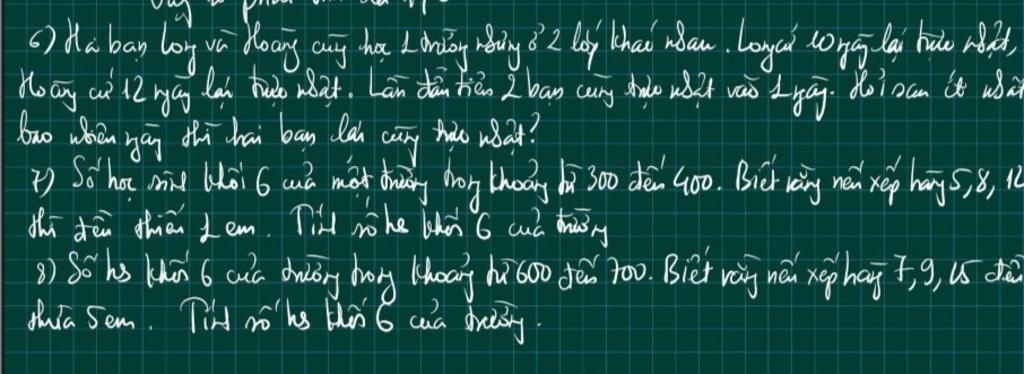 6) Hai bạn Long và Hoàng cùng học 1 trường nhưng ở 2 lớp khác nhau. Long cứ 10 ngày lại trực nhật,
Hoàng cứ 12 ngày lại trực nhật. Lần đầu tiên 2 bạn cùng trực nhật vào 1 ngày. Hỏi sau ít nhất
bao nhiêu ngày thì hai bạn lại cùng trực nhật?
7) Số học sinh khối 6 của một trường trong khoảng từ 300 đến 400. Biết rằng nếu xếp hàng 5, 8, 12
thì đều thiếu 1 em. Tính số hs khối 6 của trường
8) Số hs khối 6 của trường trong khoảng từ 600 đến 700. Biết rằng nếu xếp hàng 7, 9, 15 đều
thừa 5 em. Tính số hs khối 6 của trường.